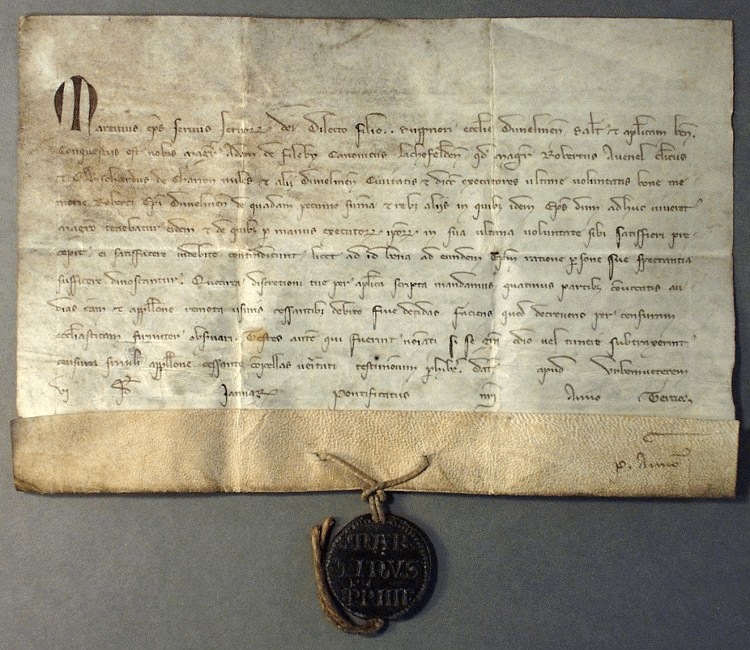 Martinus ep̄s servus servoꝝ dei Dilecto filio .. Suppriori ecctie Dunelmen̄ Salt̄ & apt̄icam ben̄.
Conquestus est nobis magr̄ Adam de Fileby Canonicus Lichefelden̄ qd̄ magr̄ Robertus Avenel clericus
& Guischardus de Charron miles & alii Dunelmen̄ Civitatis & dioc̄ executores ultime voluntatis bone me
morie Roberti Ep̄i Dunelmen̄ de quadam pecunie suma & reb; aliis in quib; idem Ep̄s dum adhuc viveret
magr̄o tenebatur eidem & de quib; p manus executoꝝ ipoꝝ in sua ultima voluntate sibi satisfieri pre
cepit ei satisfacere indebite contradicunt licet ad id bona ad eundem Ep̄m ratione psone sue spectantia
sufficere dinoscantur. Quocirca discretioni tue per apt̄ica scripta mandamus quatinus partib; convocatis au
dias cām & appellōne remota usuris cessantib; debito fine decidas faciens quod decreveris per censuram
ecclasticam firmiter observari. Testes autē qui fuerint noīati si se grā odio vel timore subtraxerint
censura simili appellōne cessante compellas veritati testimonium phibe. Dat̄ apud Urbemveterem
vi Id̄ Januaꝝ Pontificatus nr̄i Anno Tertio.
MAR
TINUS
PP IIII